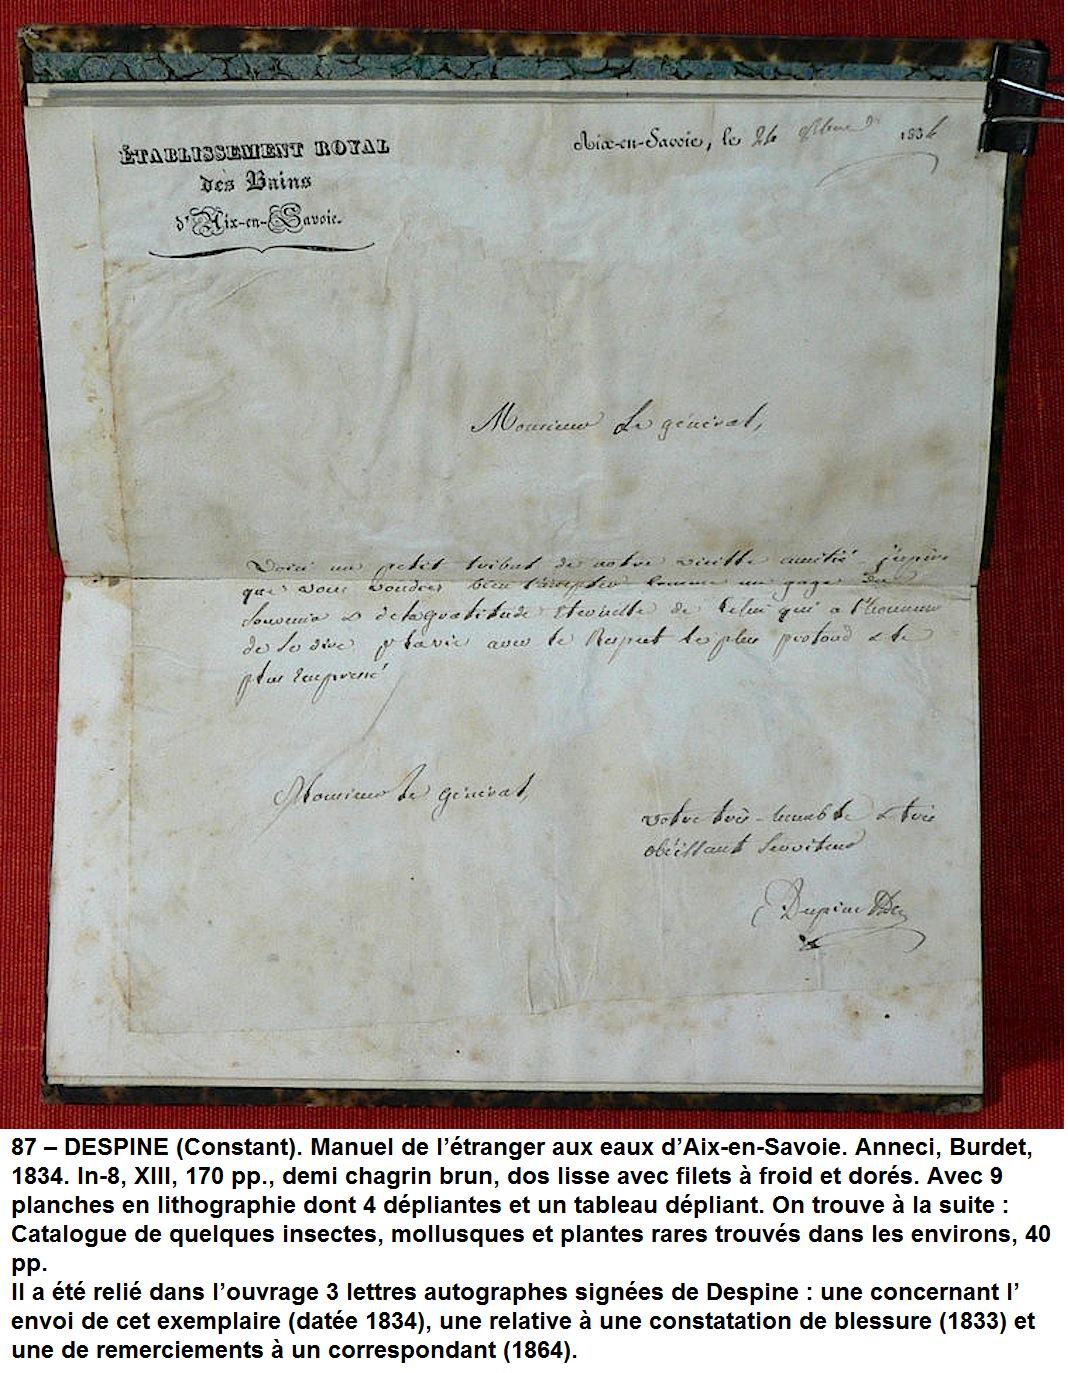 ÉTABLISSEMENT ROYAL
des Bains
d'Aix-en-Savoie.
Aix-en-Savoie, le 24 1834
Monsieur Le général,
Voici un petit tribut de notre vieille amitié. j'espère
que vous voudrez bien l'accepter comme un gage du
Souvenir & de la Gratitude Eternelle de Celui qui a l'honneur
de Se dire avec le Respect le plus profond & le
plus Empressé
Monsieur le général,
votre très-humble & très
obéissant Serviteur
Despine
87 – DESPINE (Constant). Manuel de l’étranger aux eaux d’Aix-en-Savoie. Anneci, Burdet,
1834. In-8, XIII, 170 pp., demi chagrin brun, dos lisse avec filets à froid et dorés. Avec 9
planches en lithographie dont 4 dépliantes et un tableau dépliant. On trouve à la suite :
Catalogue de quelques insectes, mollusques et plantes rares trouvés dans les environs, 40
pp.
Il a été relié dans l’ouvrage 3 lettres autographes signées de Despine : une concernant l’
envoi de cet exemplaire (datée 1834), une relative à une constatation de blessure (1833) et
une de remerciements à un correspondant (1864).